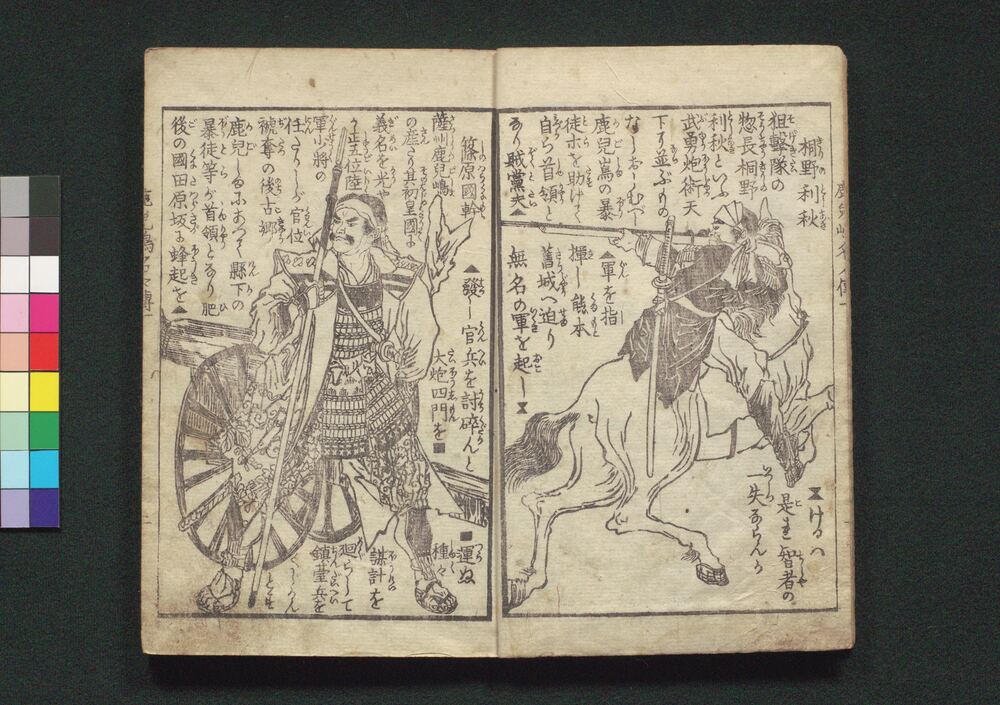 桐野利秋
狙撃隊の
惣長桐野
利秋といふ
武勇炮術天
下に並ぶもの
なし
鹿児嶌の暴
徒ホを助けて
自ら首領と
なり賊黨大▲
▲軍を指
揮し熊本
舊城へ迫り
無名の軍を起し
けるハ
是ぞ智者の
一失ならんか
篠原國幹
薩州鹿児嶋
の産にて其初皇國に
義名を光や
かし正五位陸
軍少将の
任たりしが官位
褫奪の後古郷
鹿児しまにあつて縣下の
暴徒等が首領となり肥
後の國田原坂に蜂起を▲
▲發し官兵を討碎んと
大炮四門を■
■運ぬ
種々
謀計を
廻らして
鎮䑓兵を